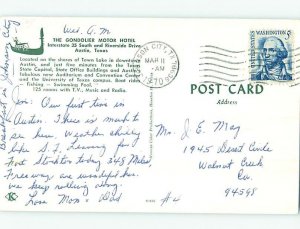 Wed. A.M
THE GONDOLIER MOTOR HOTEL
Interstate 35 South and Riverside Drive
Austin, Texas
Located on the shores of Town Lake in downtown
Austin, and just five minutes from the Texas
State Capitol, State Office Buildings and Austin's
fabulous new Auditorium and Convention Center
and the University of Texas. Restaurant
fishing - Swimming Pool.
125 rooms with T.V., Music and Radio.
Breakfast in Johnson City
MAR 11
AM
1970
WASHINGTON 5
POST CARD
ADDRESS
Jim: Our first time in
Austin. There is much to
see here. Weather chilly
like S.F. Leaving for
Fort Stockton today 345 Miles.
Freeways are wonderful so
we keep rolling along.
Love Mom & Dad
#4
Mr. J. E. May
1945 Desert Circle
Walnut Creek
Ca.
94598
K